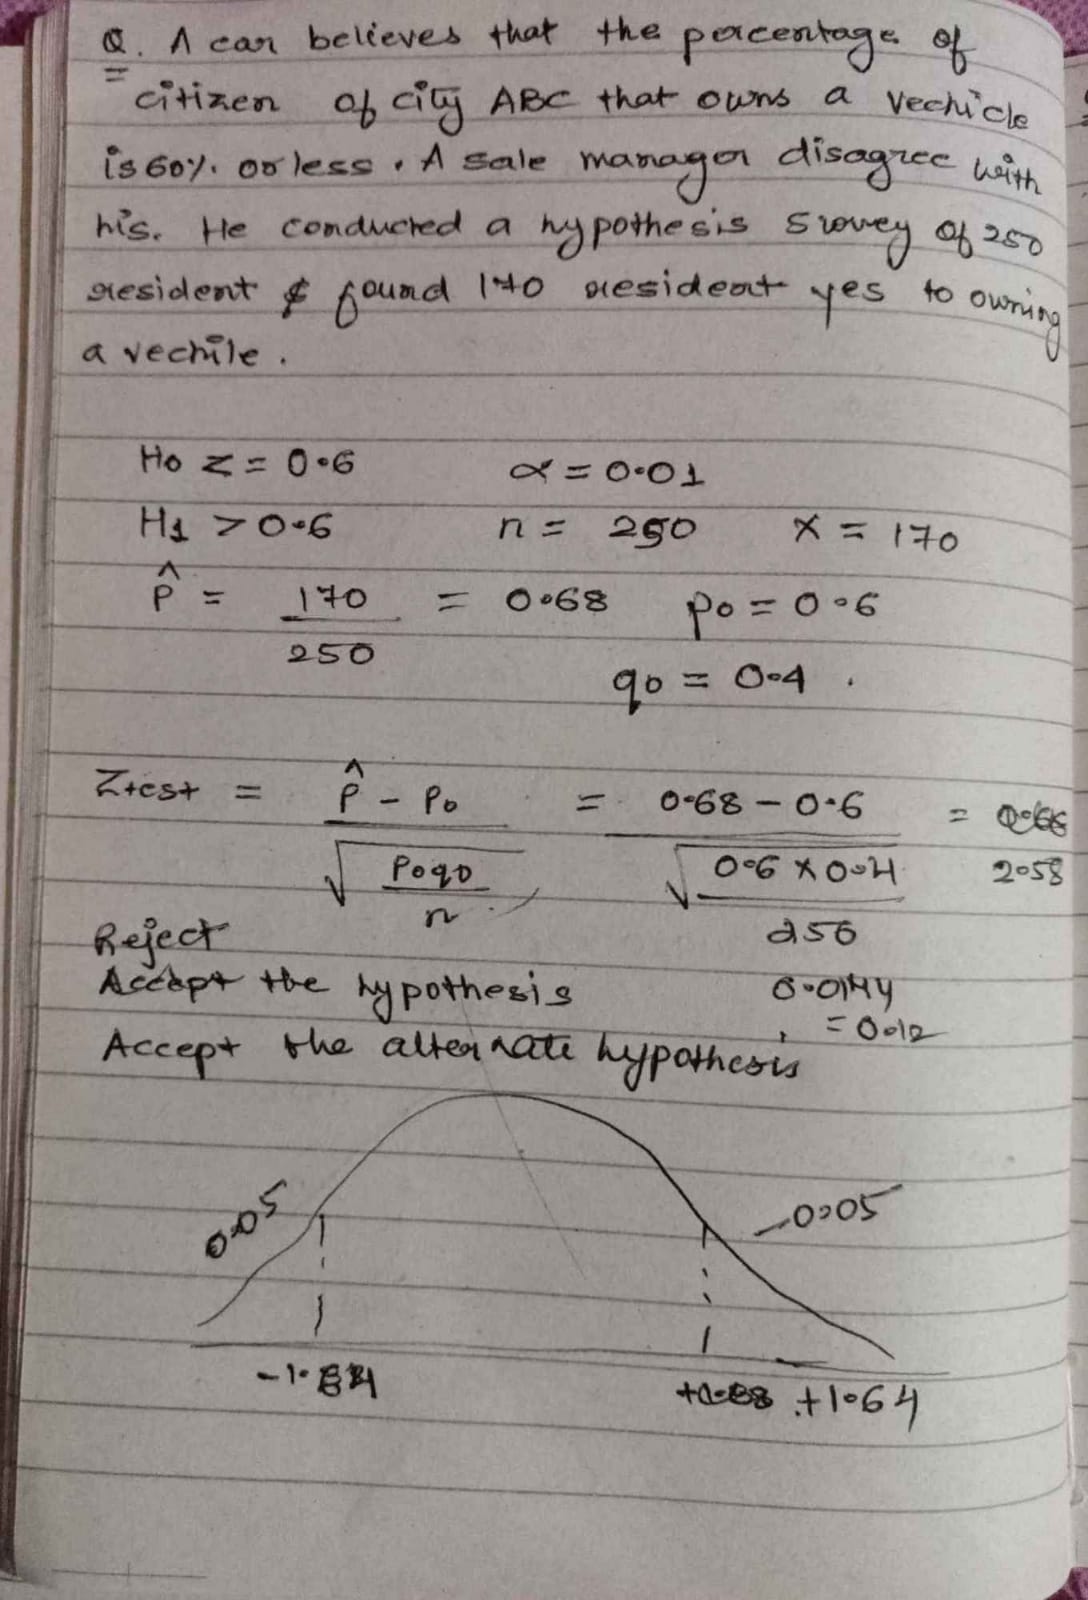 Q. A car believes that the percentage of
citizen of city ABC that owns a vechicle
is 60%. or less. A sale manager disagree with
his. He conducted a hypothesis survey of 250
resident & found 170 resident yes to owning
a vechile.
H0 z = 0.6 α = 0.01
H1 > 0.6 n = 250 x = 170
p̂ = 170 = 0.68 p0 = 0.6
250
q0 = 0.4.
Ztest = p̂ - p0 = 0.68 - 0.6 =
√ p0q0 √ 0.6 x 0.4 2.58
n 250
Reject
Accept the hypothesis 0.0144
= 0.12
Accept the alternate hypothesis
0.05 0.05
+1.64